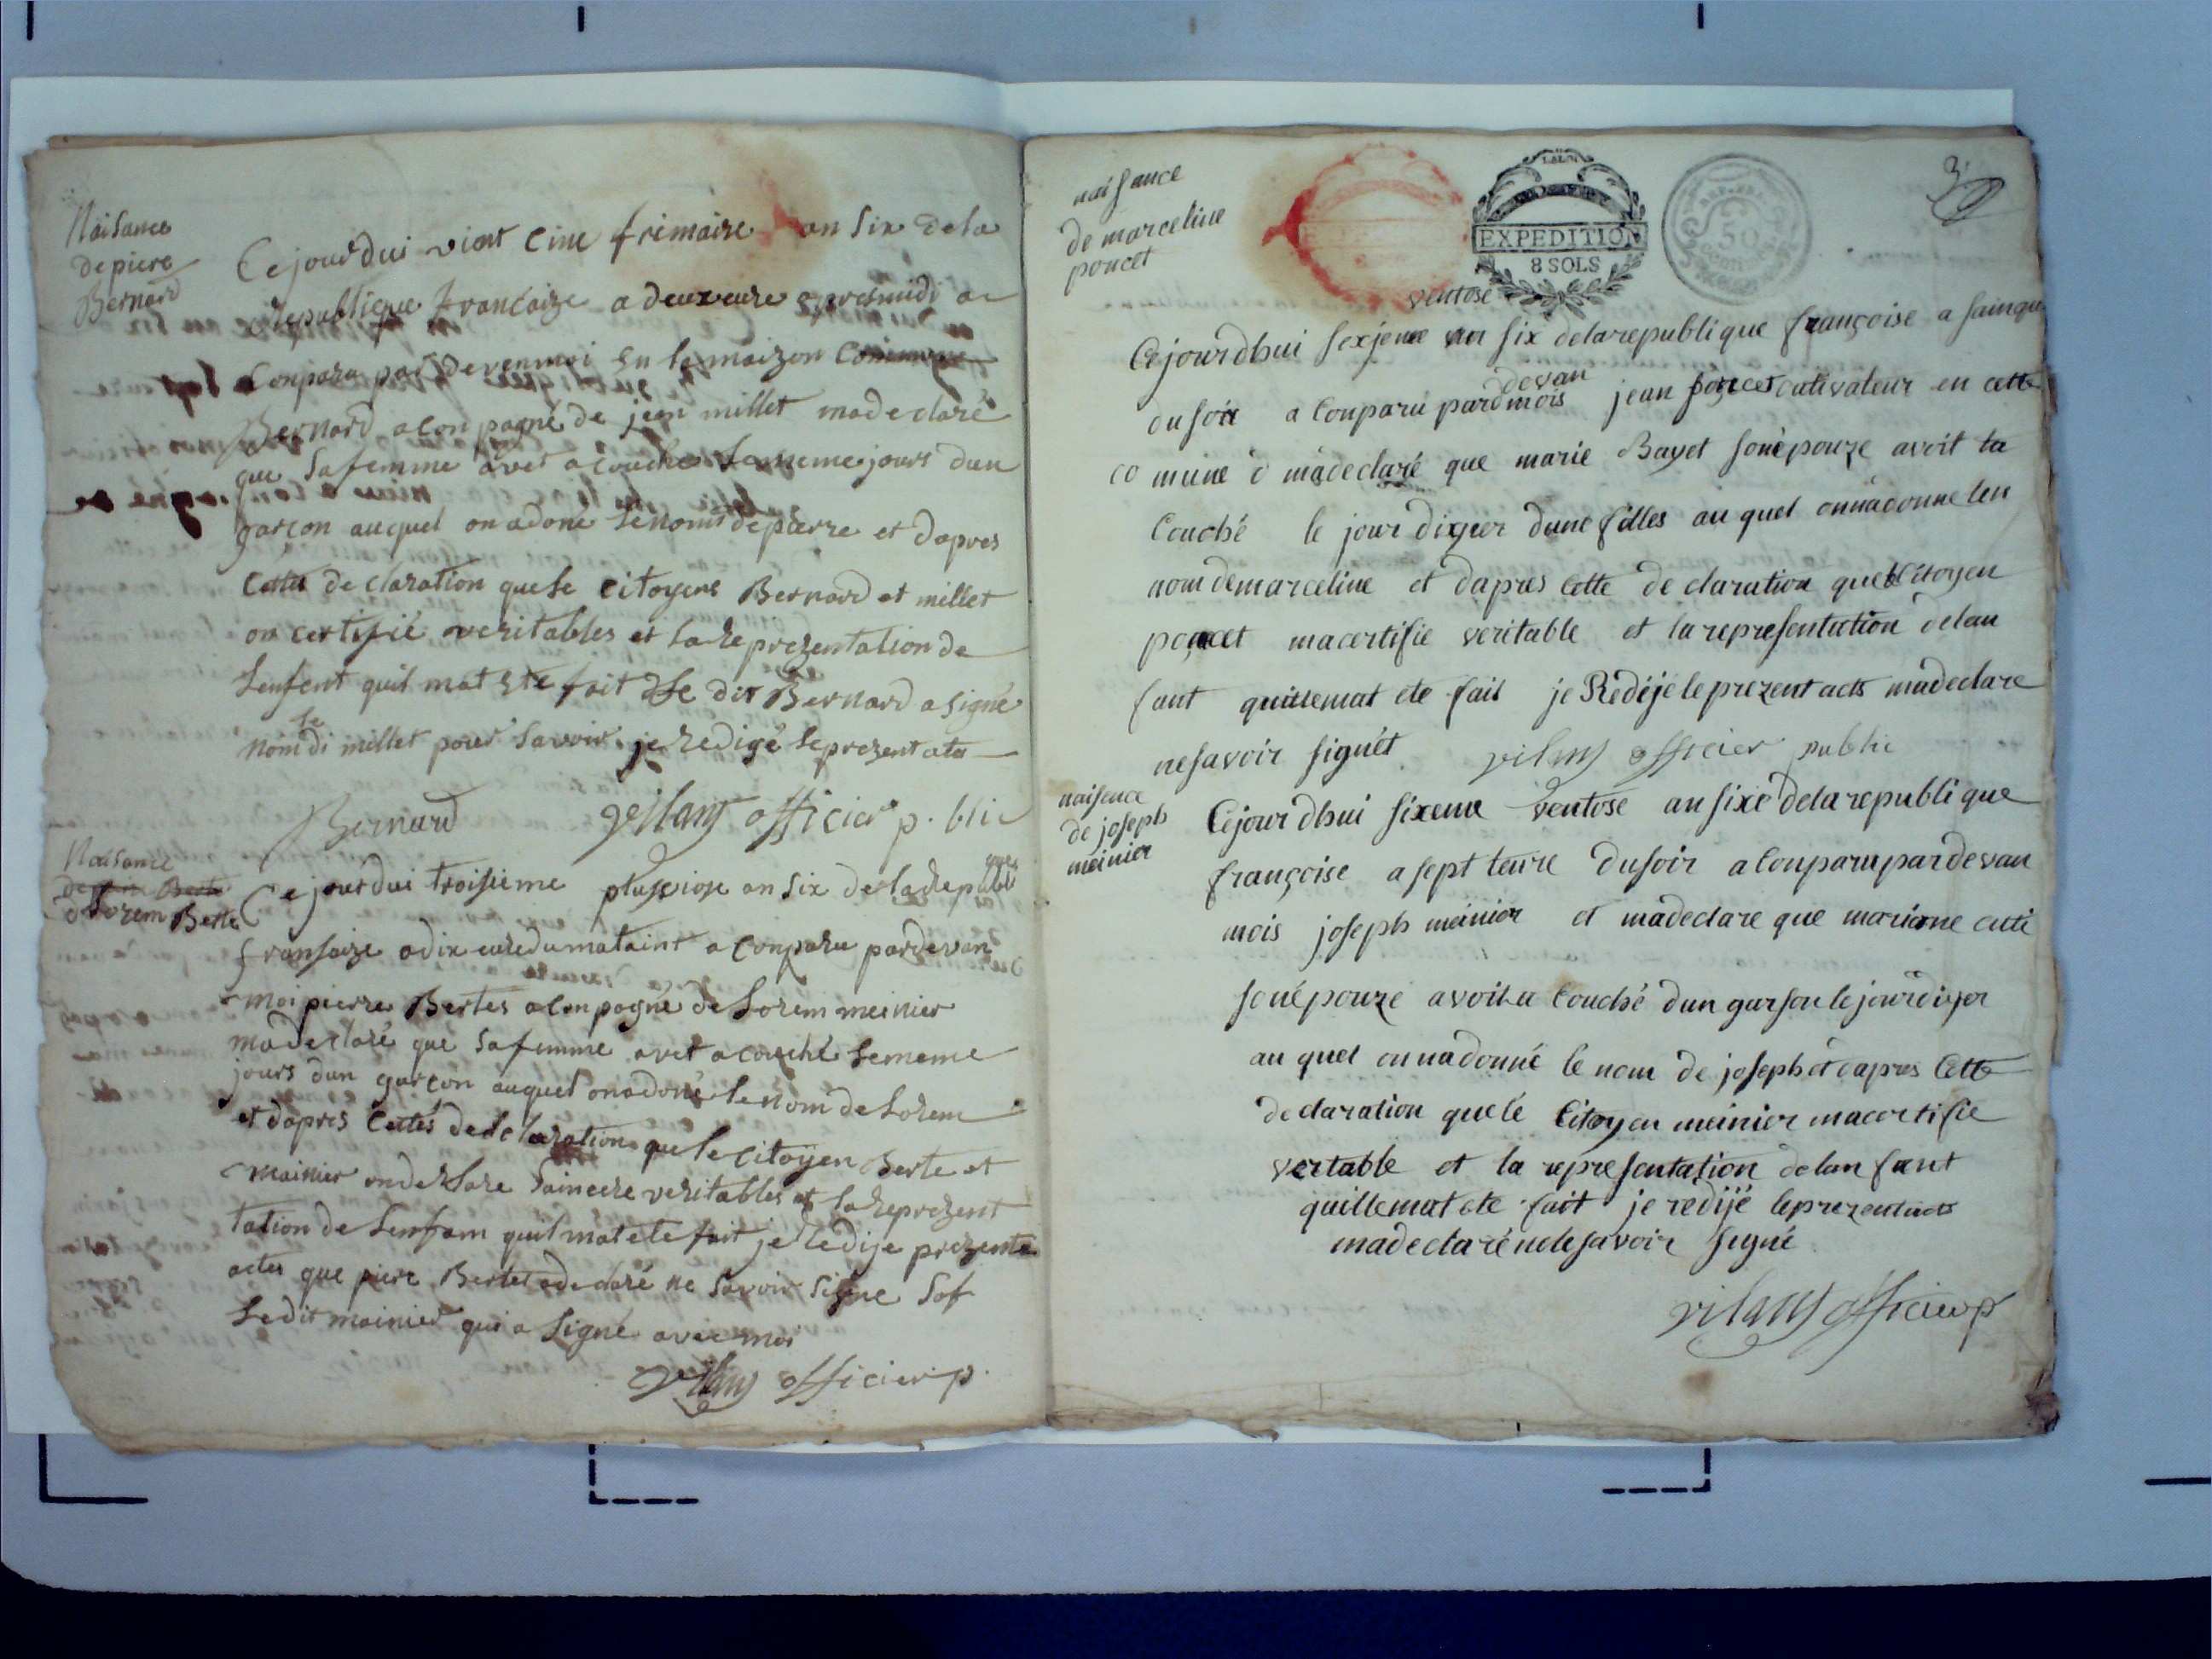 Naisance
de piere
Bernard
Ce jourdui vient cinc frimaire an six de la
republique francaize a deux eure apresmidi a
conparu par devenmoi en la maizon commune
Bernard aconpagné de jean millet madeclaré
que sa femme avet acouché le meme jours dun
garcon auquel on a doné le nom de pierre et dapres
cette declaration que le citoyens Bernard et millet
on certifié veritables et la reprezentation de
lenfent quil mat ete fait le dit Bernard a signé
le
nom di millet pour savoir je redigé le prezent ate
Bernard officier p. blic
Naisance
de lorem Berte
Ce jourdui troisieme pluviose an six de la republi
que
fransaize a dix eure du mataint a conparu pardevan
moi pierre Bertes aconpagné de lorem meinier
madeclaré que sa femme avet acouché le meme
jours dun garcon auquel on a doné le nom de lorem
et dapres cettes declaration que le citoyen Berte et
mainier on deklare saincere veritables et la reprezent
tation de lenfam quil mat ete fait je redije prezente
actes que piere Bertet a declaré ne savoir signe sof
le dit mainier qui a signé avec moi
officier p.
naisance
de marceline
poncet
LA LOI
EXPEDITION
8 SOLS
50
3
ventose
Cejourdhui sexjeme an six delarepublique françoise a sainque
devan
du soir a conparu par mois jean poncet cultivateur en cette
comune madeclaré que marie Bayet son épouze avoit ta
couché le jour dixyer dune filles au quel onnadonne leu
nom de marceline et dapres cette declaration que le citoyen
poncet macertifie veritable et la representation delan
fant quillemat ete fait je Redije le prezent acts madeclare
ne savoir signét officier public
naisence
de joseph
meinier
Cejourdhui sixeme ventose an sixe delarepublique
françoise a sept teure du soir a conparu par devan
mois joseph meinier et madeclare que marione
son épouze avoit a couché dun garson le jour diyer
au quel onnadonné le nom de joseph et dapres cette
declaration que le citoyen meinier macertifie
vertable et la representation delan fant
quillemat ete fait je redijé le prezent acts
madeclaré ne le savoir signé
officier p